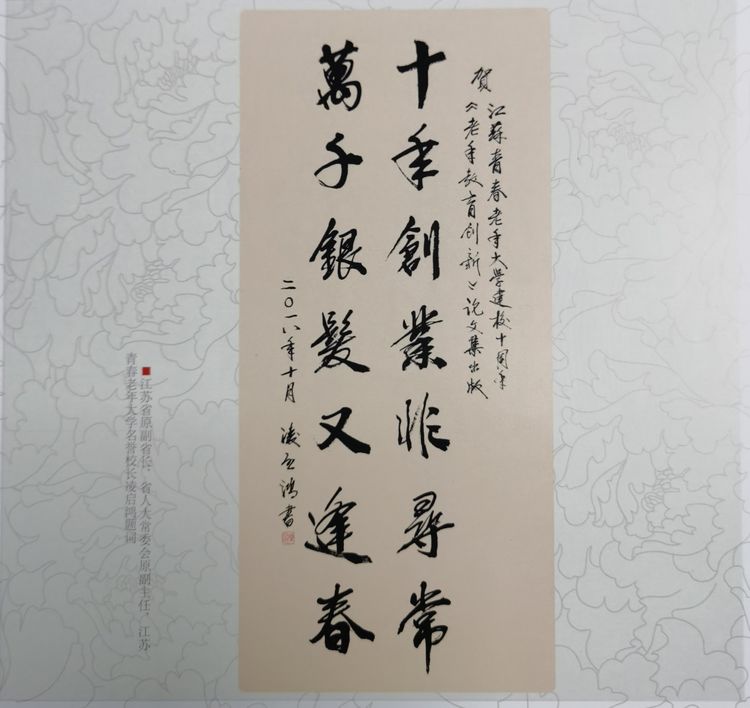 贺江苏青春老年大学建校十周年
《老年教育创新》论文集出版
十年創業非尋常
萬千銀髮又逢春
二〇一八年十月 凌启鸿書
■江苏省原副省长、省人大常委会原副主任，江苏
青春老年大学名誉校长凌启鸿题词